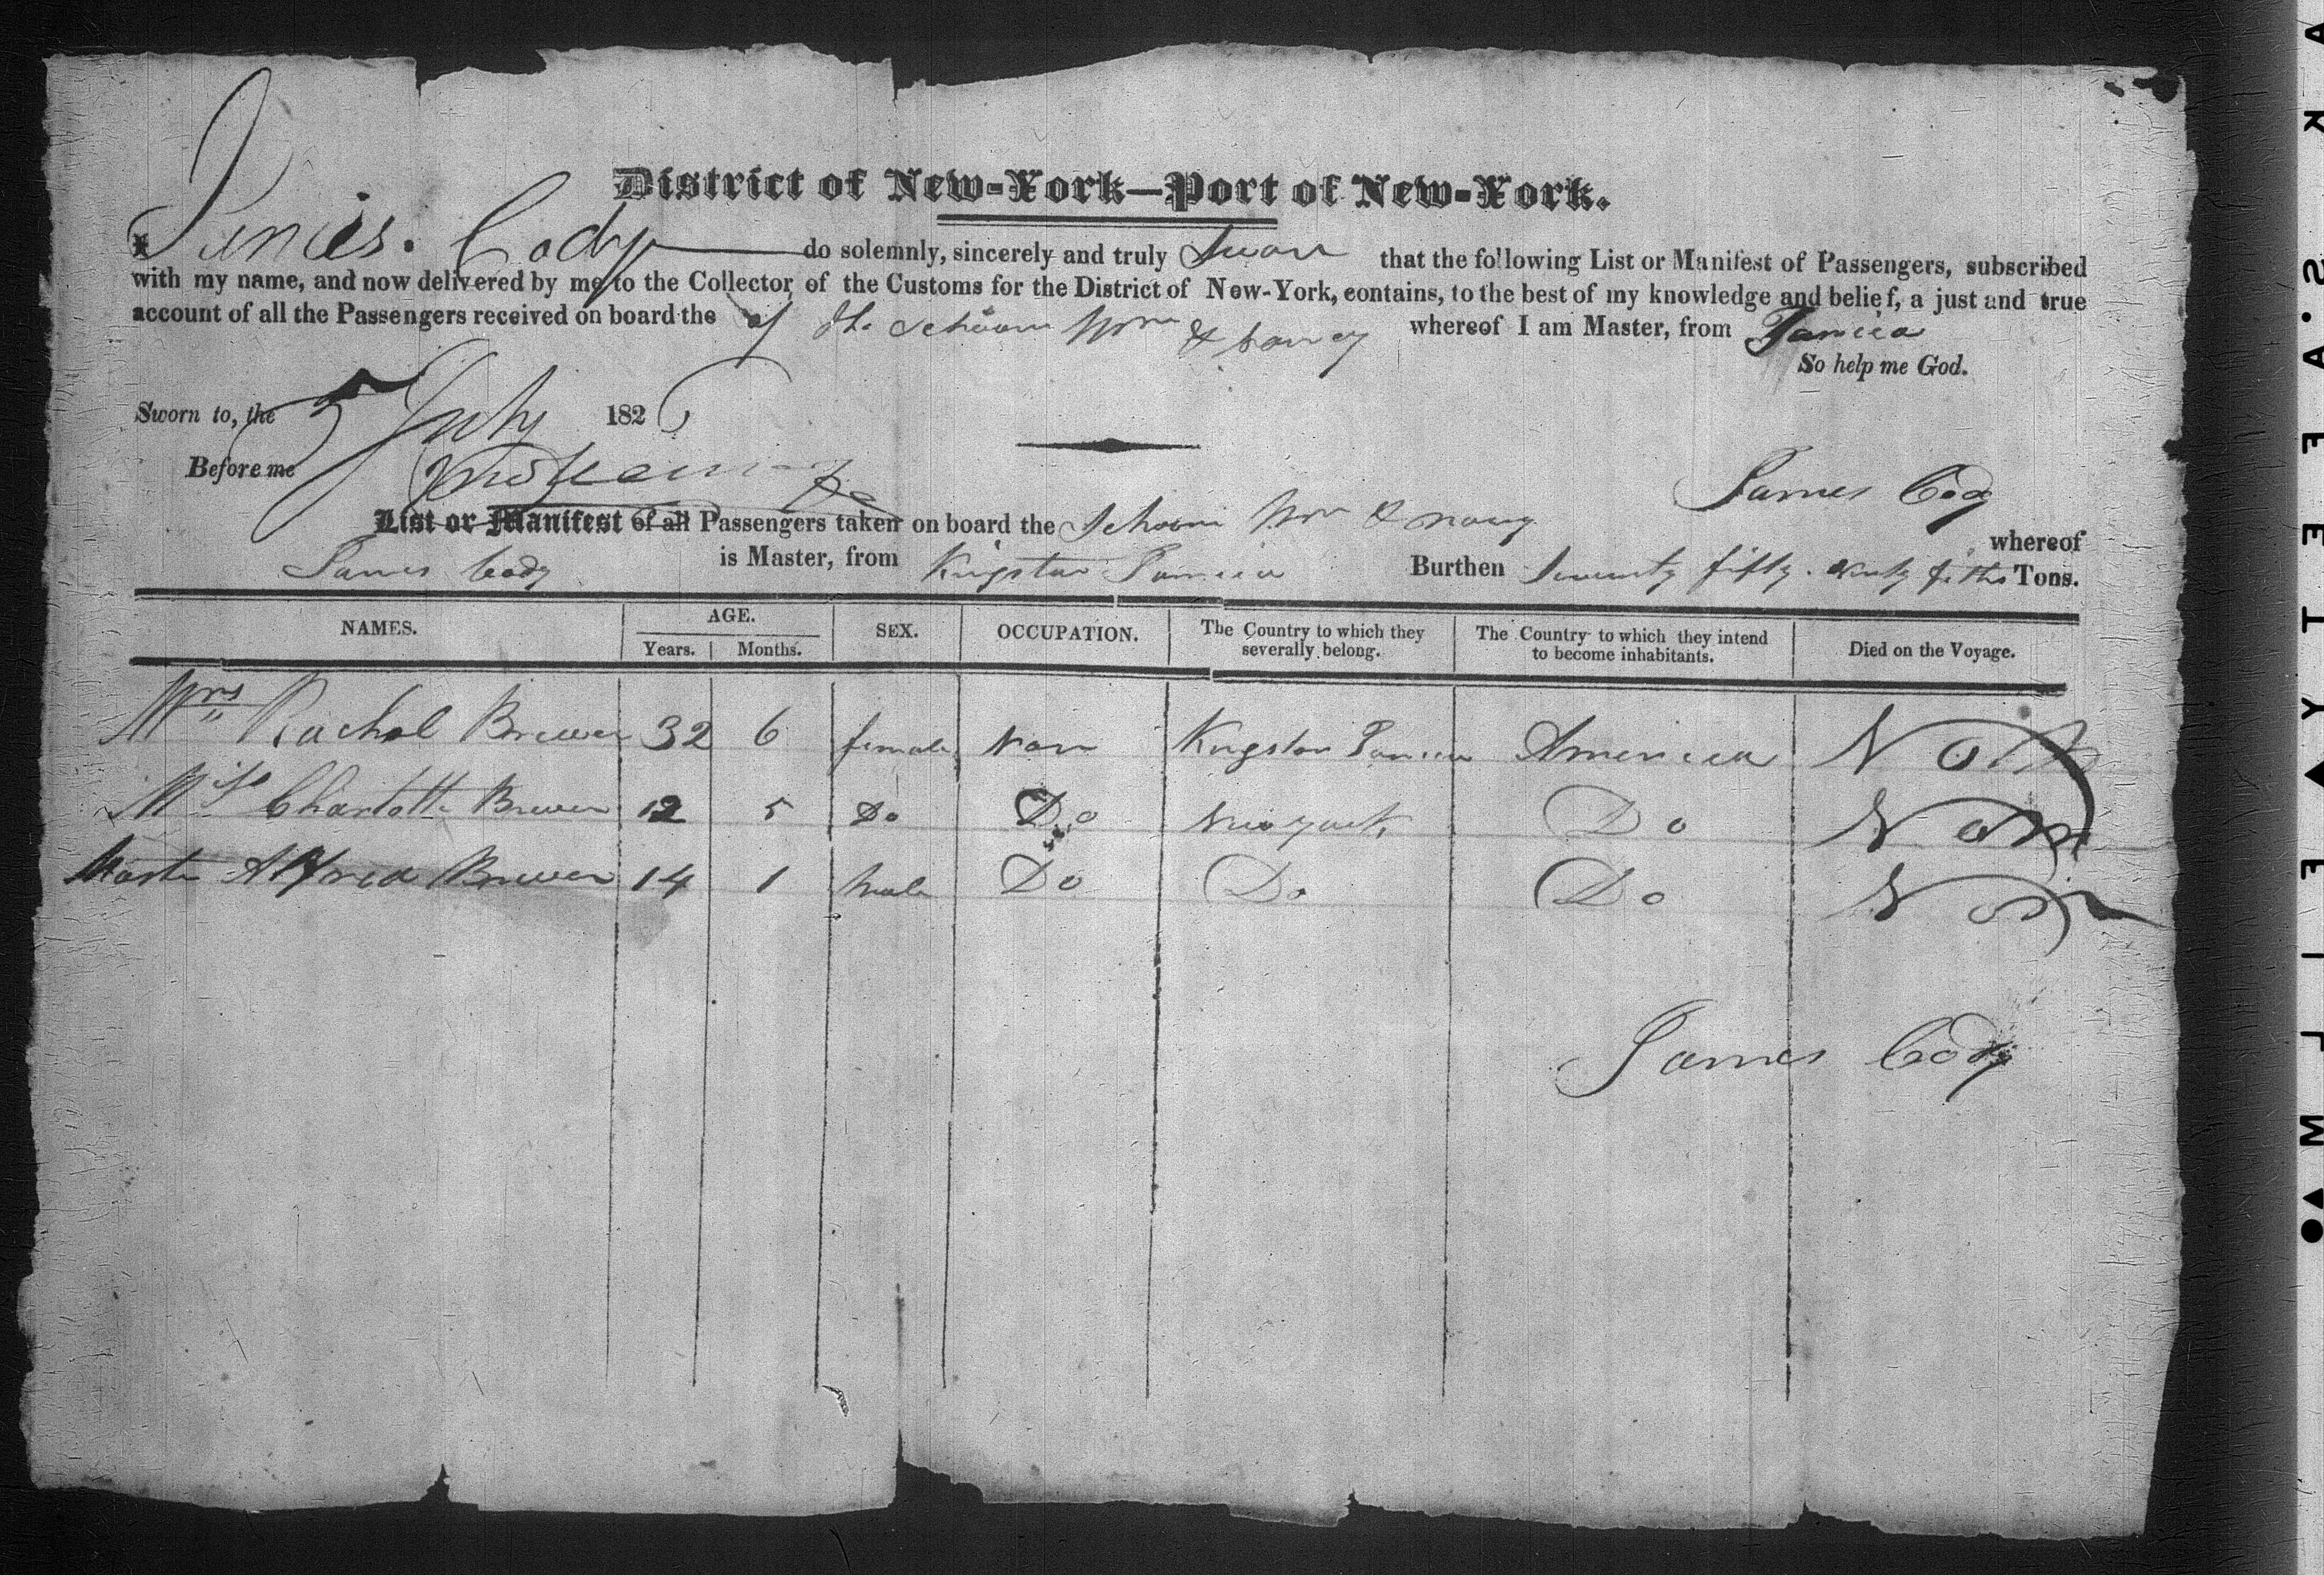 District of New-York—Port of New-York.
I James Cody do solemnly, sincerely and truly Swear that the following List or Manifest of Passengers, subscribed
with my name, and now delivered by me to the Collector of the Customs for the District of New-York, contains, to the best of my knowledge and belief, a just and true
account of all the Passengers received on board the of the Schoon Wm & Nancy whereof I am Master, from Jamica
So help me God.
Sworn to, the 5 July 1826
Before me
James Cody
List or Manifest of all Passengers taken on board the Schoon Wm & Nancy whereof
James Cody is Master, from Kingston Jamica Burthen Seventy fifty Tons.
NAMES. AGE. SEX. OCCUPATION. The Country to which they severally belong. The Country to which they intend to become inhabitants. Died on the Voyage.
Years. Months.
Mrs Rachel Brewer 32 6 female Non Kingston Jamica America Non
Miss Charlotte Brewer 12 5 Do Do New york Do Non
Master Alfred Brewer 14 1 Male Do Do Do Non
James Cody